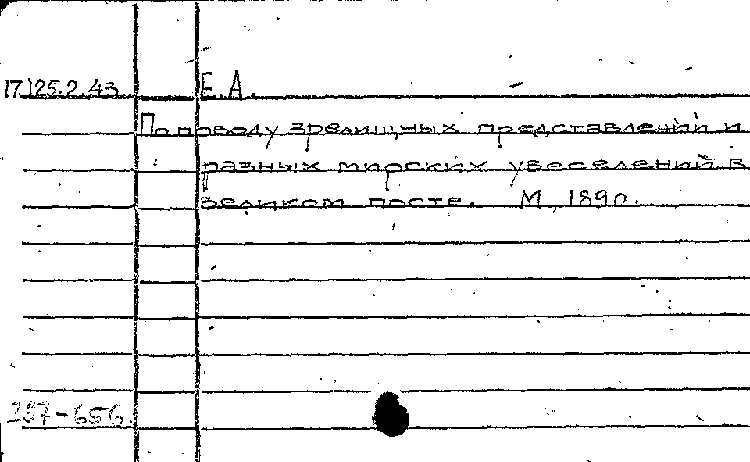 17.125.2.43 Е.А.
По поводу зрелищных представлений и
разных мирских увеселений в
великом посте. М, 1890.
257-656